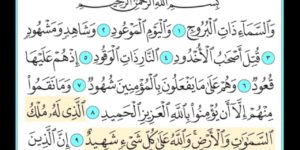 بِسْمِ اللَّهِ الرَّحْمَٰنِ الرَّحِيمِ
وَالسَّمَاءِ ذَاتِ الْبُرُوجِ ١ وَالْيَوْمِ الْمَوْعُودِ ٢ وَشَاهِدٍ وَمَشْهُودٍ
٣ قُتِلَ أَصْحَابُ الْأُخْدُودِ ٤ النَّارِ ذَاتِ الْوَقُودِ ٥ إِذْ هُمْ عَلَيْهَا
قُعُودٌ ٦ وَهُمْ عَلَىٰ مَا يَفْعَلُونَ بِالْمُؤْمِنِينَ شُهُودٌ ٧ وَمَا نَقَمُوا
مِنْهُمْ إِلَّا أَن يُؤْمِنُوا بِاللَّهِ الْعَزِيزِ الْحَمِيدِ ٨ الَّذِي لَهُ مُلْكُ
السَّمَاوَاتِ وَالْأَرْضِ وَاللَّهُ عَلَىٰ كُلِّ شَيْءٍ شَهِيدٌ ٩ إِنَّ الَّذِينَ